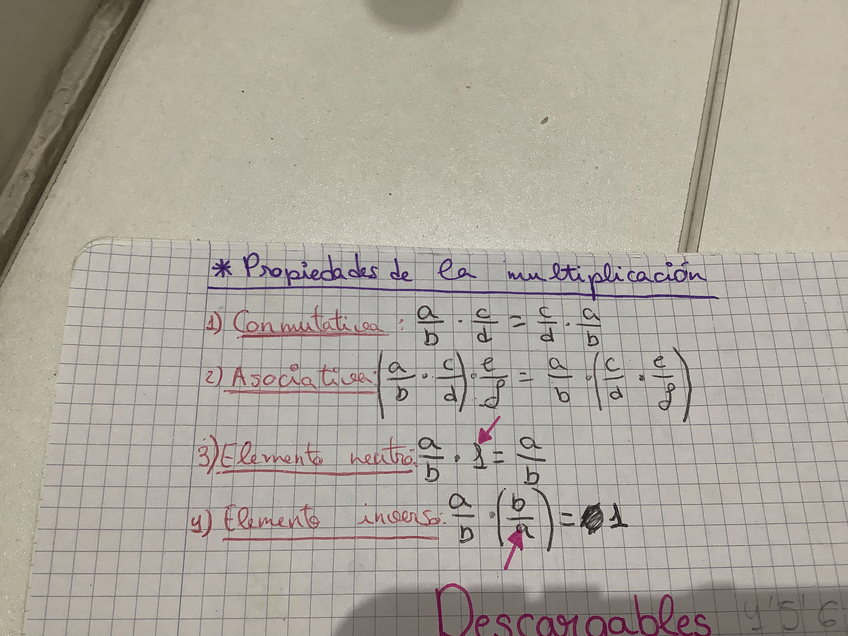 * Propiedades de la multiplicación
1) Conmutativa: a/b · c/d = c/d · a/b
2) Asociativa: (a/b · c/d) · e/f = a/b · (c/d · e/f)
3) Elemento neutro: a/b · 1 = a/b
4) Elemento inverso: a/b · (b/a) = 1
Descargables 4'5'6